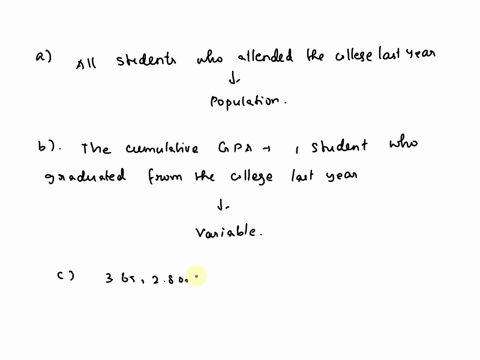 a) All students who attended the college last year
↓
Population.
b). The cumulative GPA → 1 student who
graduated from the college last year
↓
Variable.
c) 3 65, 2.80.